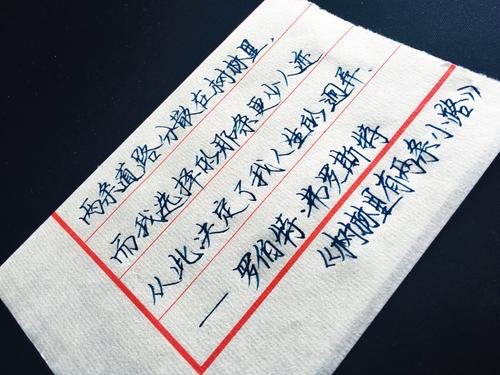 两条道路分散在树林里.
而我选择的那条更少人迹
从此决定了我人生的迥异.
— 罗伯特·弗罗斯特
《树林里有两条小路》